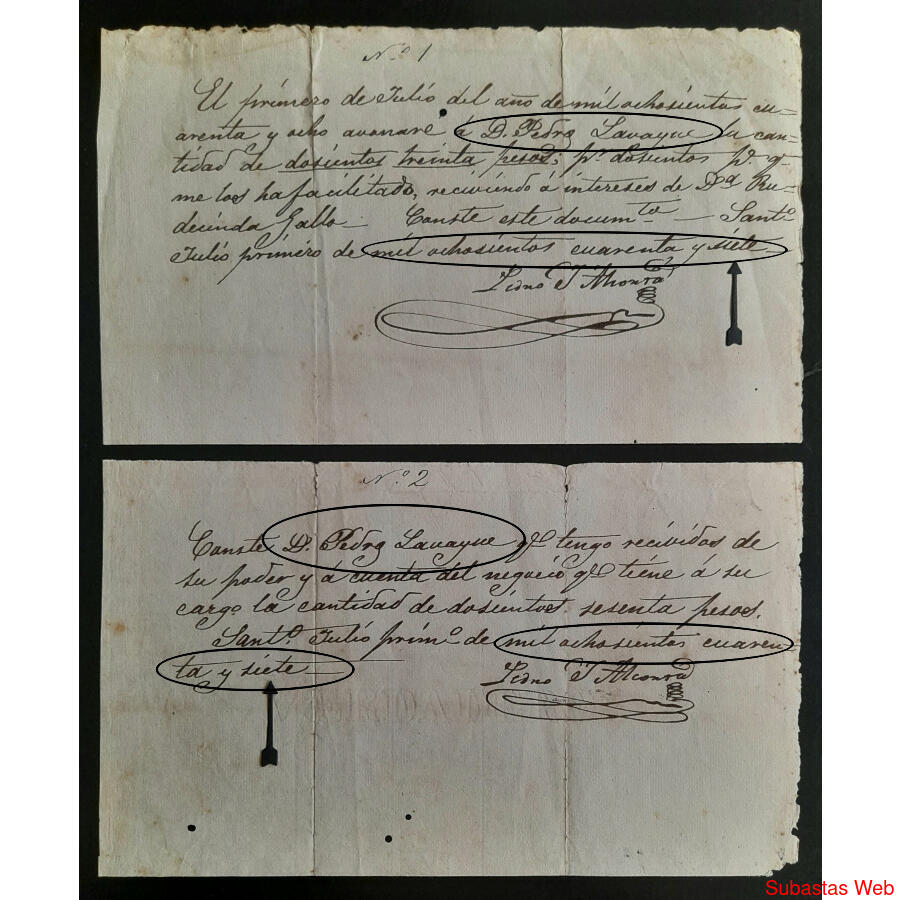 N.º 1
El primero de Julio del año de mil ochosientos cu-
arenta y ocho avonaré á D. Pedro Lavayue la can-
tidad de dosientos treinta pesos; pr. dosientos ps. q.
me los ha facilitado, reciviendo á intereses de Da Ru-
decinda Gallo. Conste este documto Santo
Julio primero de mil ochosientos cuarenta y siete
Pedro I
N.º 2
Conste D. Pedro Lavayue qe tengo recividos de
su poder y á cuenta del negocio qe tiene á su
cargo la cantidad de dosientos sesenta pesos.
Santo Julio primo de mil ochosientos cuaren
ta y siete
Pedro I
Subastas Web